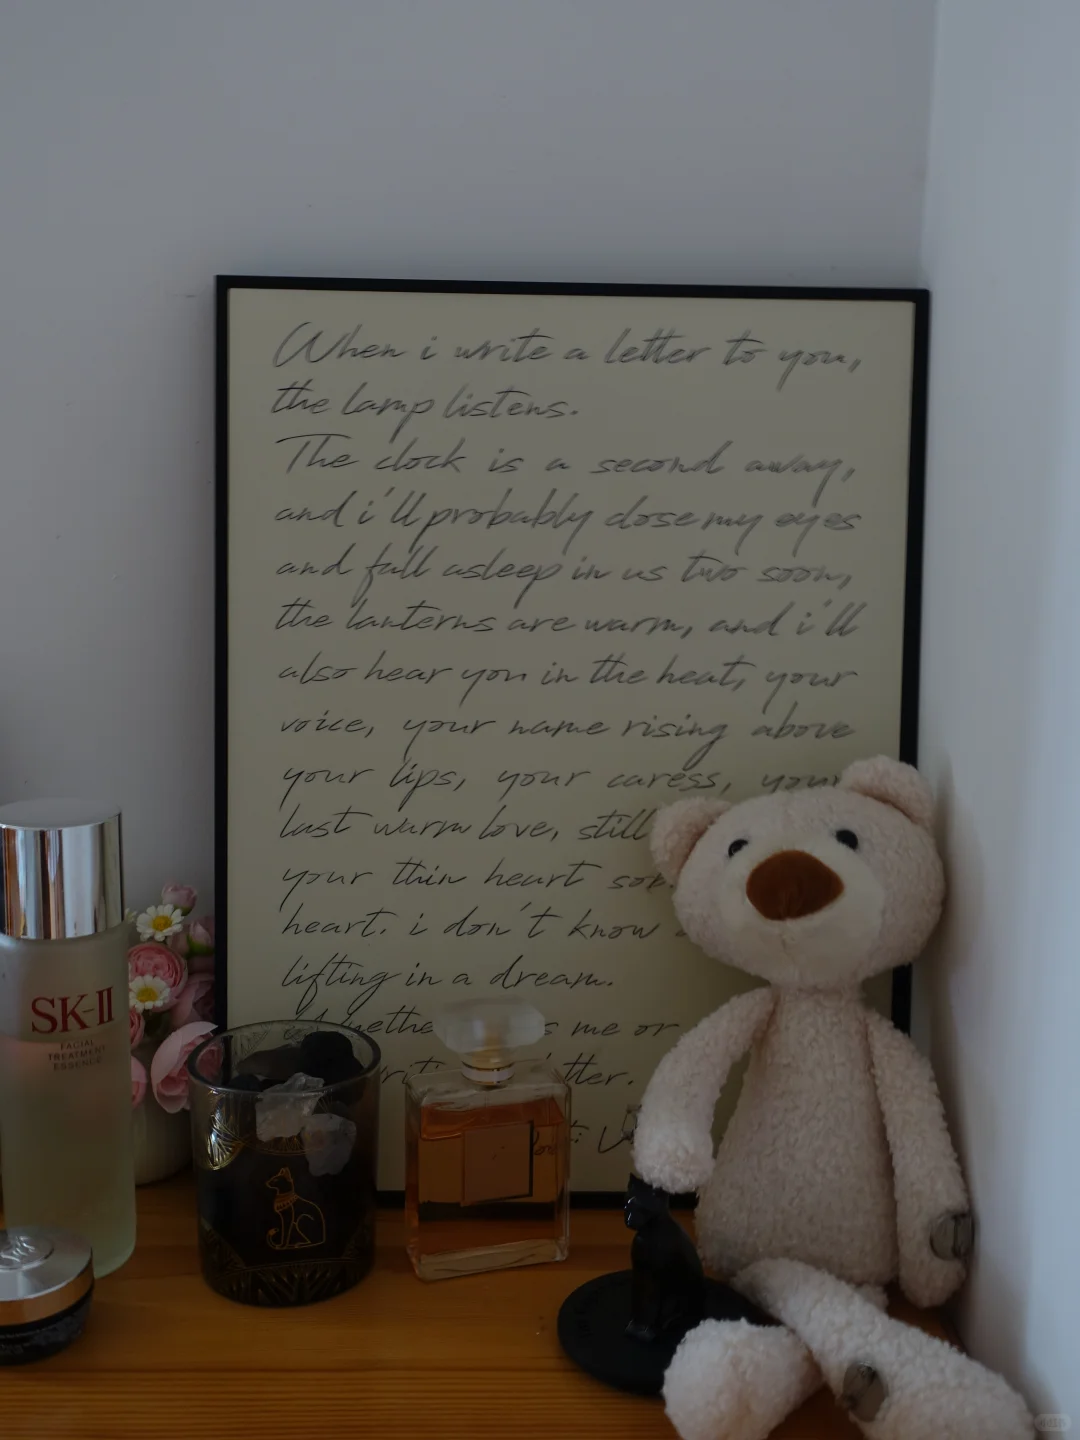 When i write a letter to you,
the lamp listens.
The clock is a second away,
and i'll probably close my eyes
and fall asleep in us two soon,
the lanterns are warm, and i'll
also hear you in the heat, your
voice, your name rising above
your lips, your caress, your
last warm love, still
your thin heart
heart. i don't know
lifting in a dream.
me or
SK-II
FACIAL
TREATMENT
ESSENCE